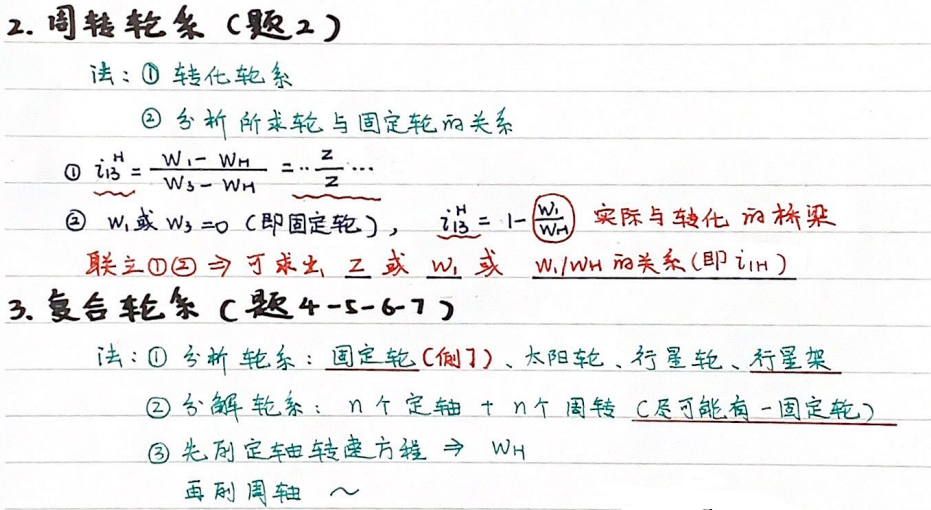 2. 周转轮系 (题2)
法: ① 转化轮系
② 分析所求轮与固定轮的关系
① i₁₃ᴴ = (W₁ - W_H)/(W₃ - W_H) = ‥ z/z ⋯
② W₁或W₃=0 (即固定轮), i₁₃ᴴ = 1 - W₁/W_H 实际与转化的桥梁
联立①② ⇒ 可求出 Z 或 W₁ 或 W₁/W_H的关系(即 i₁H)
3. 复合轮系 (题4-5-6-7)
法: ① 分析轮系: 固定轮(侧了)、太阳轮、行星轮、行星架
② 分解轮系: n个定轴 + n个周转 (尽可能有一固定轮)
③ 先列定轴转速方程 ⇒ W_H
再列周轴 ~